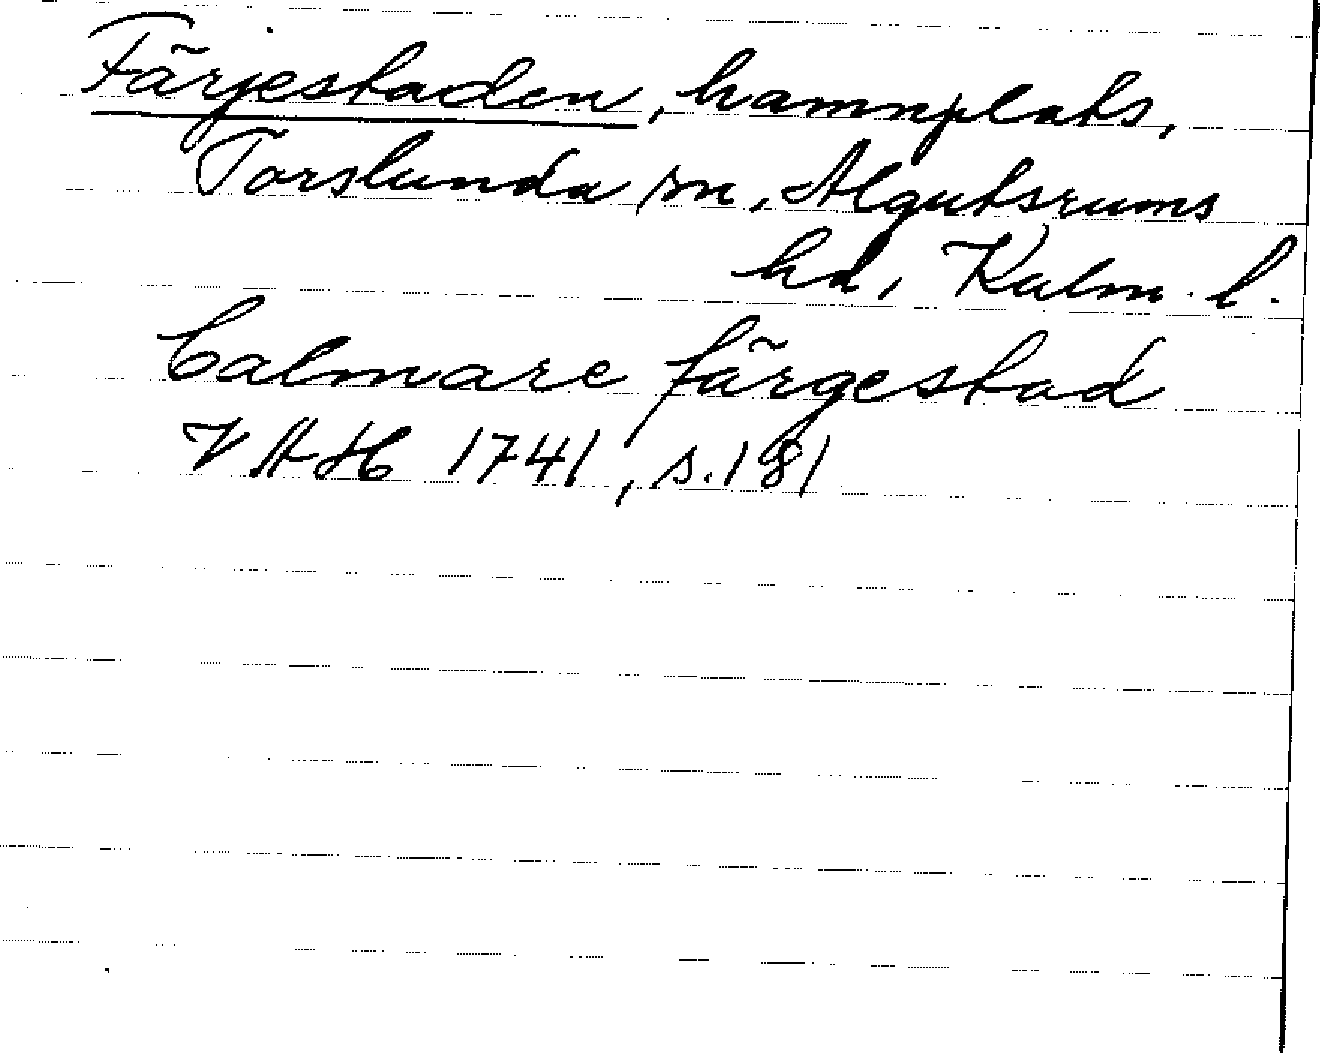 Färjestaden, hamnplats,
Torslunda sn, Algutsrums
hd, Kalm. l.
Calmare färgestad
VAH 1741, s. 181